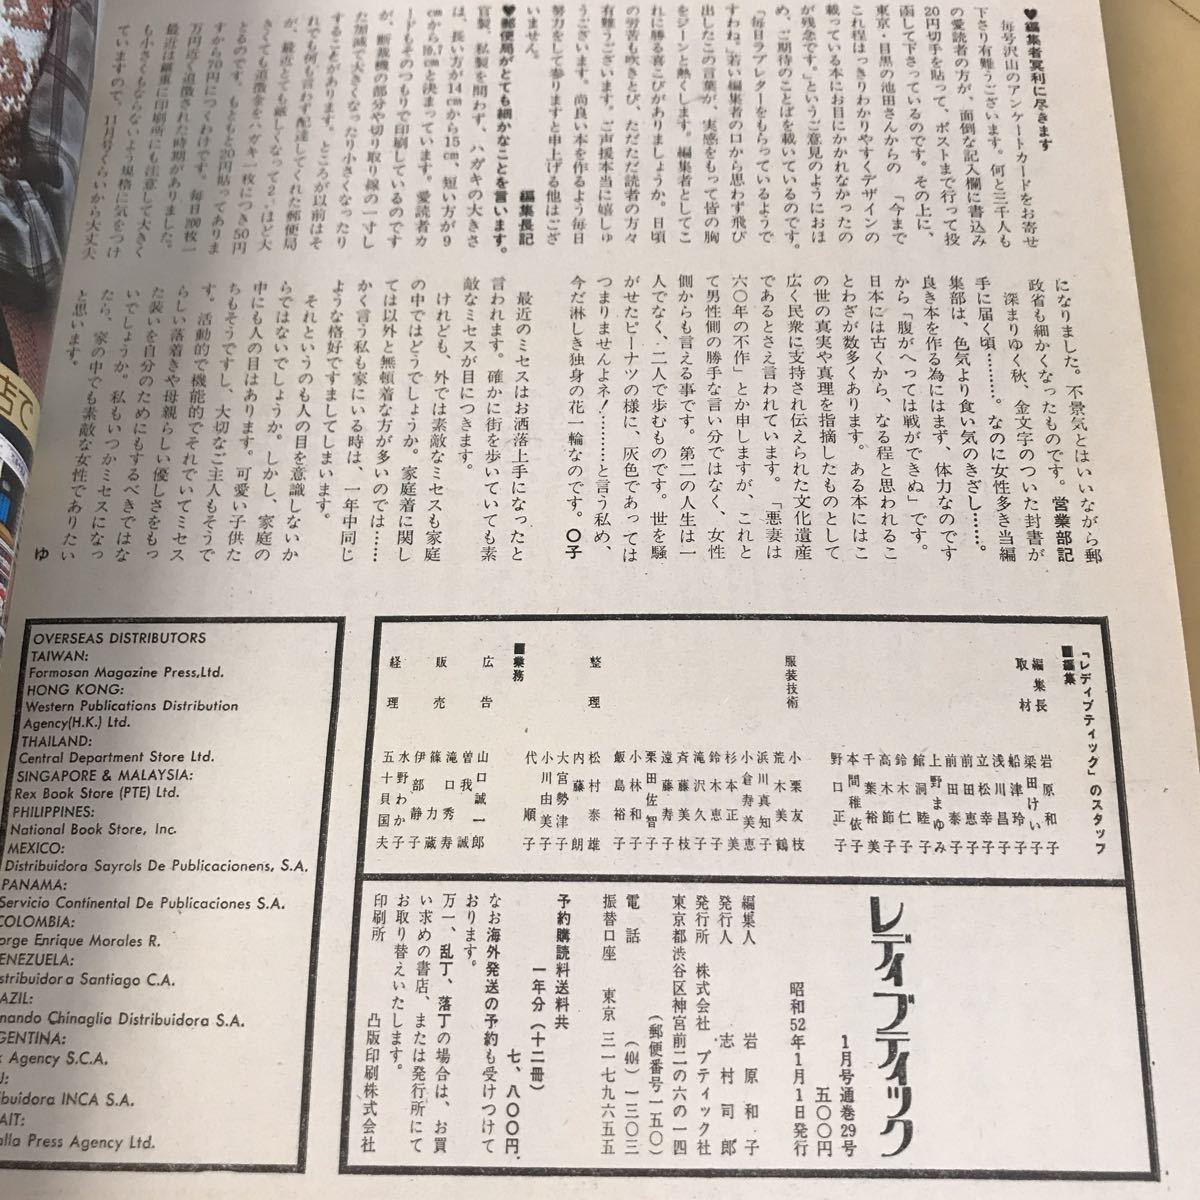 ♥編集者冥利に尽きます
毎号沢山のアンケートカードをお寄せ
下さり有難うございます。何と三千人も
の愛読者の方が、面倒な記入欄に書込み
20円切手を貼って、ポストまで行って投
函して下さっているのです。その上に、
東京・目黒の池田さんからの「今まで
これ程はっきりわかりやすくデザインの
載っている本にお目にかかれなかったの
が残念です。」というご意見のようにおほ
め、ご期待のことばを載いているのです。
「毎日ラブレターをもらっているようで
すわね。」若い編集者の口から思わず飛び
出したこの言葉が、実感をもって皆の胸
をジーンと熱くします。編集者としてこ
れに勝る喜びがありましょうか。日頃
の労苦も吹きとび、ただただ読者の方々
有難うございます。ご声援本当に嬉しゅ
うございます。尚良い本を作るよう毎日
努力をして参りますと申上げる他はござ
いません。
編集長記
♥郵便局がとても細かなことを言います。
官製、私製を問わず、ハガキの大きさ
は、長い方が14cmから15cm、短い方が9
cmから10.7cmと決まっています。愛読者カ
ードもそのつもりで印刷しているのです
が、断裁機の部分や切り取り線の一寸し
た加減で大きくなったり小さくなったり
することがあります。ところが以前はそ
れでも何も言わず配達してくれた郵便局
が、最近とても厳しくなって2㍉ほど大
きくても追徴金をハガキ一枚につき50円
とるのです。もともと20円貼ってありま
すから70円につくわけです。毎日200枚一
万円近く追徴された時期がありました。
最近は厳重に印刷所にも注意して大きく
も小さくもならないよう規格に気をつけ
ていますので、11月号くらいから大丈夫
になりました。不景気とはいいながら郵
政省も細かくなったものです。営業部記
深まりゆく秋、金文字のついた封書が
手に届く頃………。なのに女性多き当編
集部は、色気より食い気のきざし……。
良き本を作る為にはまず、体力なのです
から「腹がへっては戦ができぬ」です。
日本には古くから、なる程と思われるこ
とわざが数多くあります。ある本にはこ
の世の真実や真理を指摘したものとして
広く民衆に支持され伝えられた文化遺産
であるとさえ言われています。「悪妻は
六〇年の不作」とか申しますが、これと
て男性側の勝手な言い分ではなく、女性
側からも言える事です。第二の人生は一
人でなく、二人で歩むものです。世を騒
がせたピーナツの様に、灰色であっては
つまりませんよネ！………と言う私め、
今だ淋しき独身の花一輪なのです。 〇子
最近のミセスはお洒落上手になったと
言われます。確かに街を歩いていても素
敵なミセスが目につきます。
けれども、外では素敵なミセスも家庭
の中ではどうでしょうか。家庭着に関し
ては以外と無頓着な方が多いのでは……
かく言う私も家にいる時は、一年中同じ
ような格好ですましてしまいます。
それというのも人の目を意識しないか
らではないでしょうか。しかし、家庭の
中にも人の目はあります。可愛い子供た
ちもそうですし、大切なご主人もそうで
す。活動的で機能的でそれでいてミセス
らしい落着きや母親らしい優しさをもっ
た装いを自分のためにもするべきではな
いでしょうか。私もいつかミセスになっ
たら、家の中でも素敵な女性でありたい
と思います。
ゆ
「レディブティック」のスタッフ
■編集
編集長 岩原和子
取材 梁田けい子
船津玲子
浅川昌子
立松幸子
前田恵子
前田泰子
上野まゆみ
館洞睦子
鈴木仁子
高木節子
千葉裕美
本間稚依子
野口正子
服装技術 小栗友枝
荒木美鶴
浜川真知子
小倉寿美恵
杉本正美
鈴木恵子
滝沢久子
斉藤美枝
遠藤寿子
栗田佐智子
小林和子
飯島裕子
整理 松村泰雄
内藤朗
大宮勢津子
小川由美子
代順子
■業務
広告 山口誠一郎
曽我誠
販売 滝口秀寿
篠力蔵
伊部静子
水野わか子
経理 五十貝国夫
レディブティック
1月号通巻29号
五〇〇円
昭和52年1月1日発行
編集人 岩原和子
発行人 志村司郎
発行所 株式会社 ブティック社
東京都渋谷区神宮前二の六の一四
(郵便番号一五〇)
電話 (404)一三〇三
振替口座 東京 三一七九六五五
予約購読料送料共
一年分(十二冊)
七、八〇〇円。
なお海外発送の予約も受けつけて
おります。
万一、乱丁、落丁の場合は、お買
い求めの書店、または発行所にて
お取り替えいたします。
印刷所 凸版印刷株式会社
OVERSEAS DISTRIBUTORS
TAIWAN:
Formosan Magazine Press,Ltd.
HONG KONG:
Western Publications Distribution
Agency(H.K.) Ltd.
THAILAND:
Central Department Store Ltd.
SINGAPORE & MALAYSIA:
Rex Book Store (PTE) Ltd.
PHILIPPINES:
National Book Store, Inc.
MEXICO:
Distribuidora Sayrols De Publicacionens, S.A.
PANAMA:
Servicio Continental De Publicaciones S.A.
COLOMBIA:
orge Enrique Morales R.
ENEZUELA:
stribuidora Santiago C.A.
AZIL:
rnando Chinaglia Distribuidora S.A.
GENTINA:
k Agency S.C.A.
U:
ribuidora INCA S.A.
AIT:
alla Press Agency Ltd.